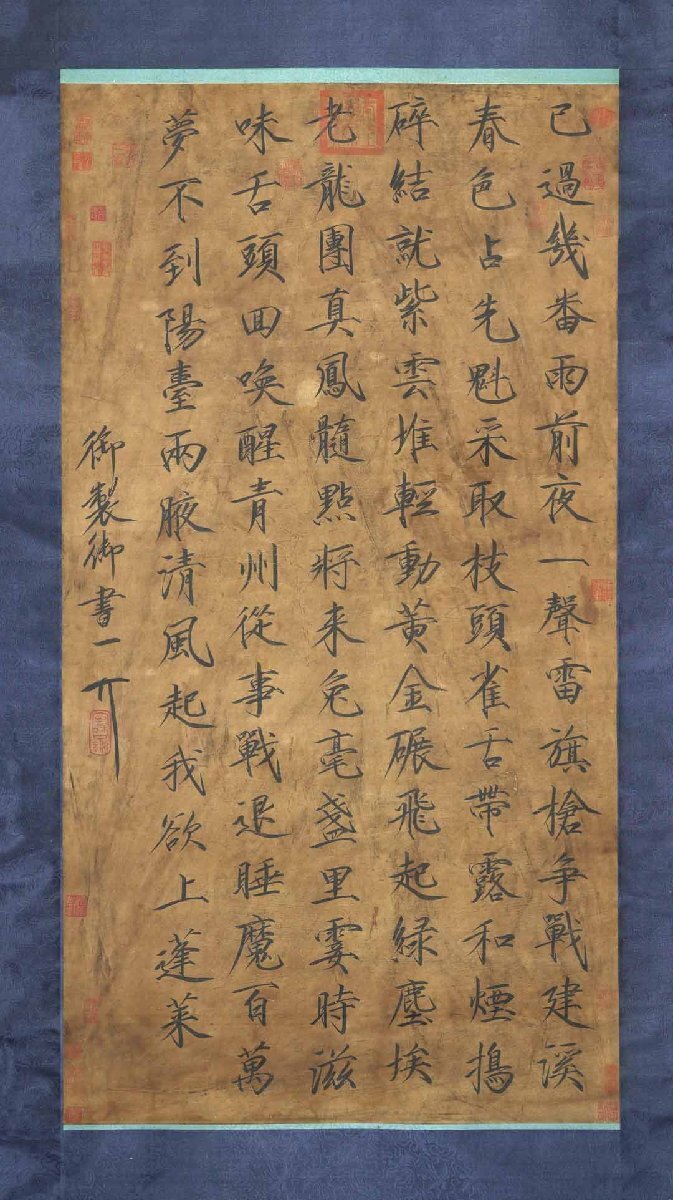 已過幾番雨前夜一聲雷旗槍争戰建溪
春色占先魁采取枝頭雀舌帶露和煙搗
碎結就紫雲堆輕動黃金碾飛起綠塵埃
老龍團真鳳髓點將来兔毫盞里霎時滋
味舌頭回喚醒青州從事戰退睡魔百萬
夢不到陽臺兩腋清風起我欲上蓬莱
御製御書一